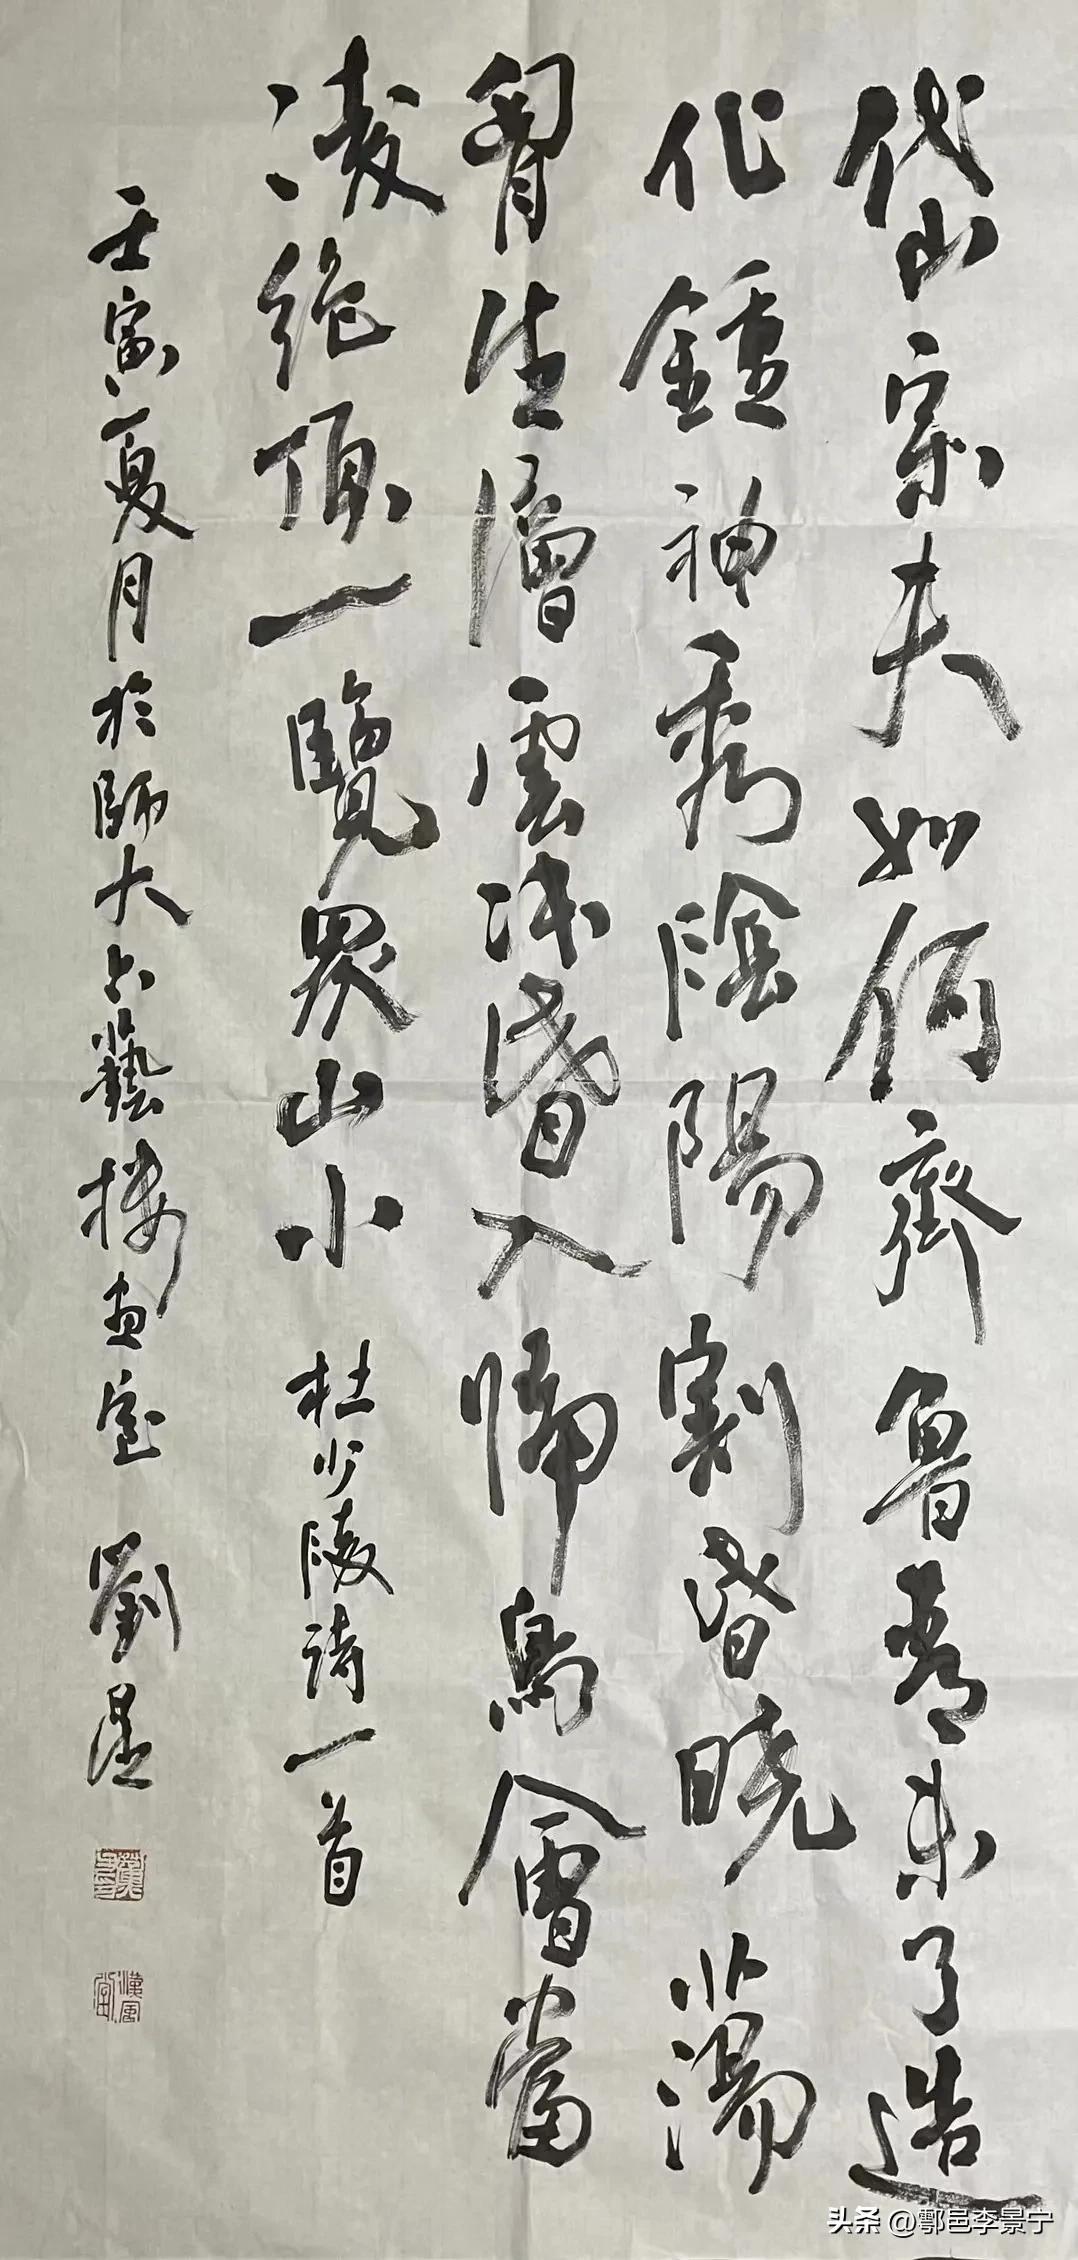 岱宗夫如何齊魯青未了造
化鍾神秀陰陽割昏曉蕩
胷生層雲決眥入歸鳥會當
凌絕頂一覽眾山小 杜少陵詩一首
壬寅夏月於師大六藝樓畫室 劉
头条 @鄠邑李景宁